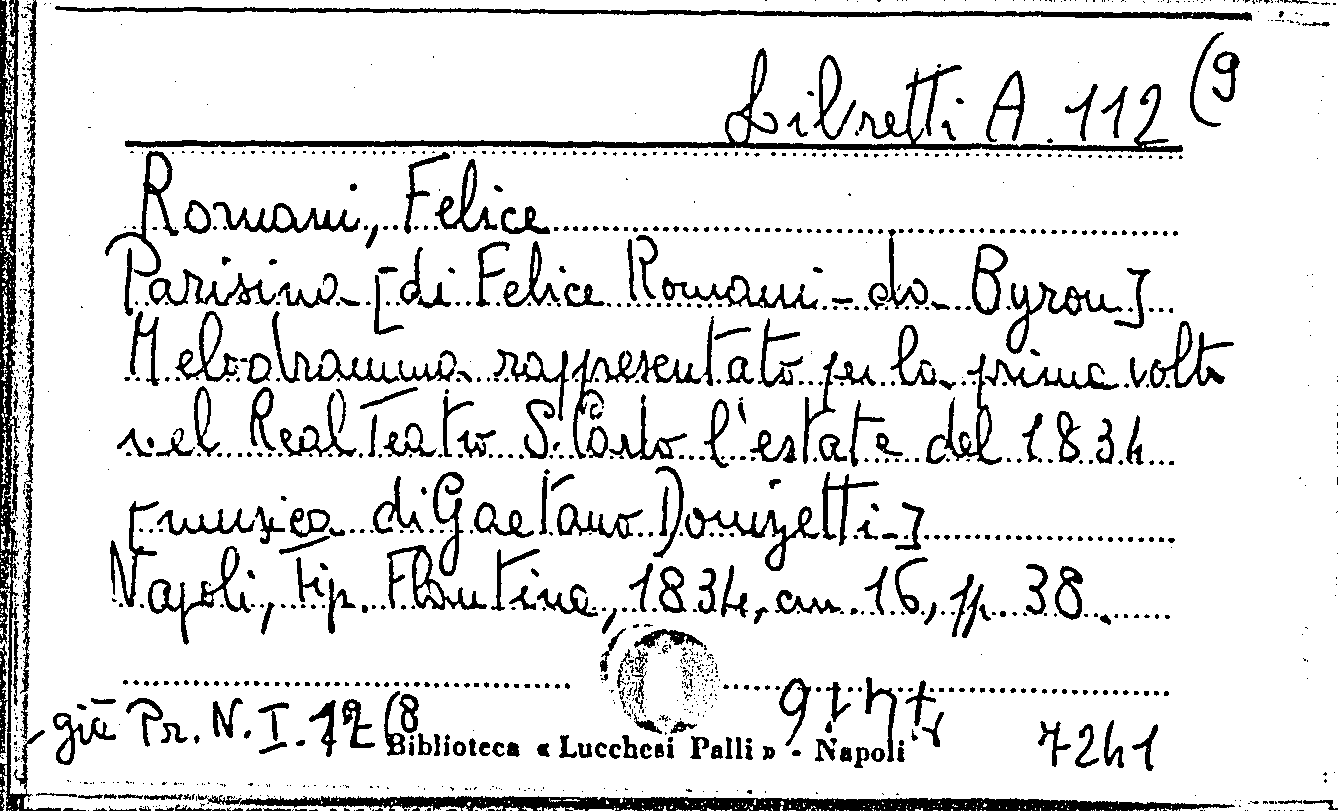 Libretti A. 112 (9
Romani, Felice
Parisina [di Felice Romani - da Byron]
Melodramma rappresentato per la prima volta
nel Real Teatro S. Carlo l'estate del 1834
[musica di Gaetano Donizetti-]
Napoli, Tip. Flautina, 1834, cm. 16, pp. 38.
già Pr. N. I. 12 (8
Biblioteca « Lucchesi Palli » - Napoli
7241